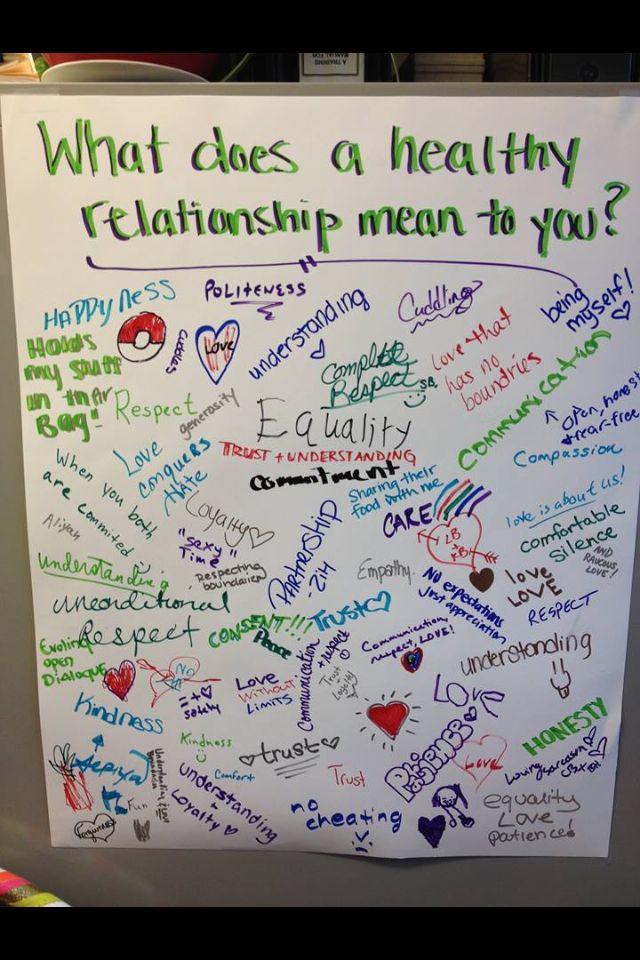 A TRAINING
MANUAL FOR
What does a healthy
relationship mean to you?
HAPPYNESS
POLITENESS
understanding
Cuddling
being
myself!
Holds
my stuff
in their
Bag"
cuddles
Love
Complete
Respect
SB
Love that
has no
boundries
communication
open, honest
+ fear-free
Respect
generosity
Equality
TRUST + UNDERSTANDING
commitment
Compassion
Love
conquers
HATE
When you both
are commited
Aliyah
Loyalty
Sharing their
food with me
CARE
LB
RB
love is about us!
comfortable
silence
AND
RAUCOUS
LOVE!
"sexy"
Time
Partnership
- ZiH
Respecting
boundaries
Empathy.
understanding
unconditional
Respect
No expectations
Just appreciation
love
LOVE
RESPECT
CONSENT!!!
Peace
Trust
Evoling
open
DiALOGUE
NO
Communication
+ respect
Communication,
respect, LOVE!
understanding
Trust
+
Loyalty
= + ♡
safety
Love
without
LIMITS
Love
Kindness
Kindness
trust
Patience
Love
HONESTY
Loving sarcasm
Comfort
Trust
Fun
understanding
+
Loyalty
no
cheating
equality
LOVE
patience!
forgiveness